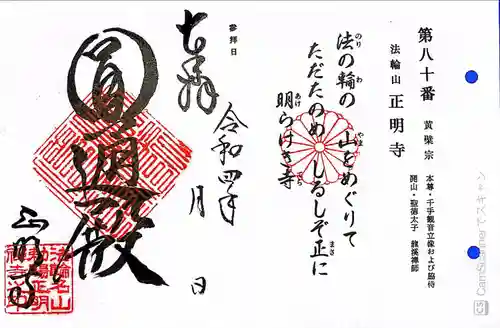 第八十番 黄檗宗
本尊・千手観音立像および脇侍
開山・聖徳太子 龍渓禅師
法輪山 正明寺
法の輪の 山をめぐりて
のり わ やま
ただたのめ しるしぞ正に
まさ
明らけき寺
あけ てら
参拝日
奉拝
令和四年 月 日
圓通殿
正明寺
CS CamScannerでスキャン